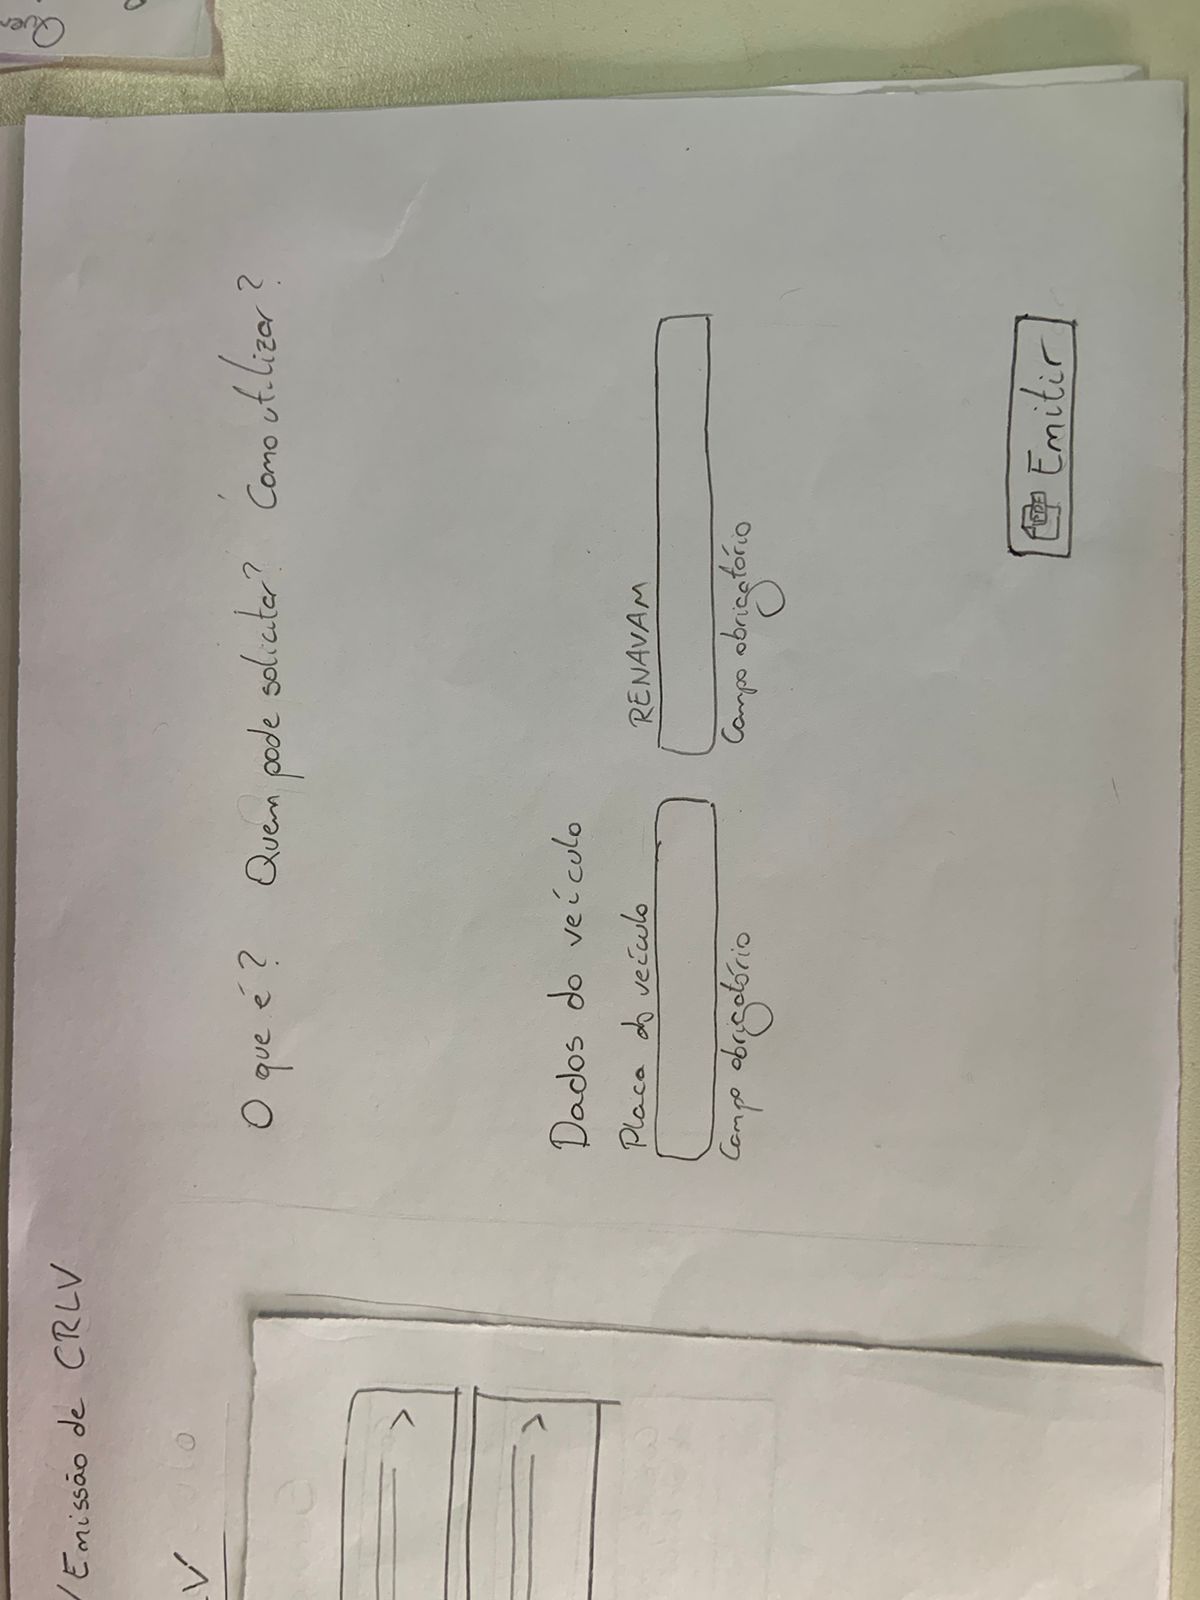 / Emissão de CRLV
LV
O que é? Quem pode solicitar? Como utilizar?
Dados do veículo
Placa do veículo RENAVAM
Campo obrigatório Campo obrigatório
PDF Emitir
Quem